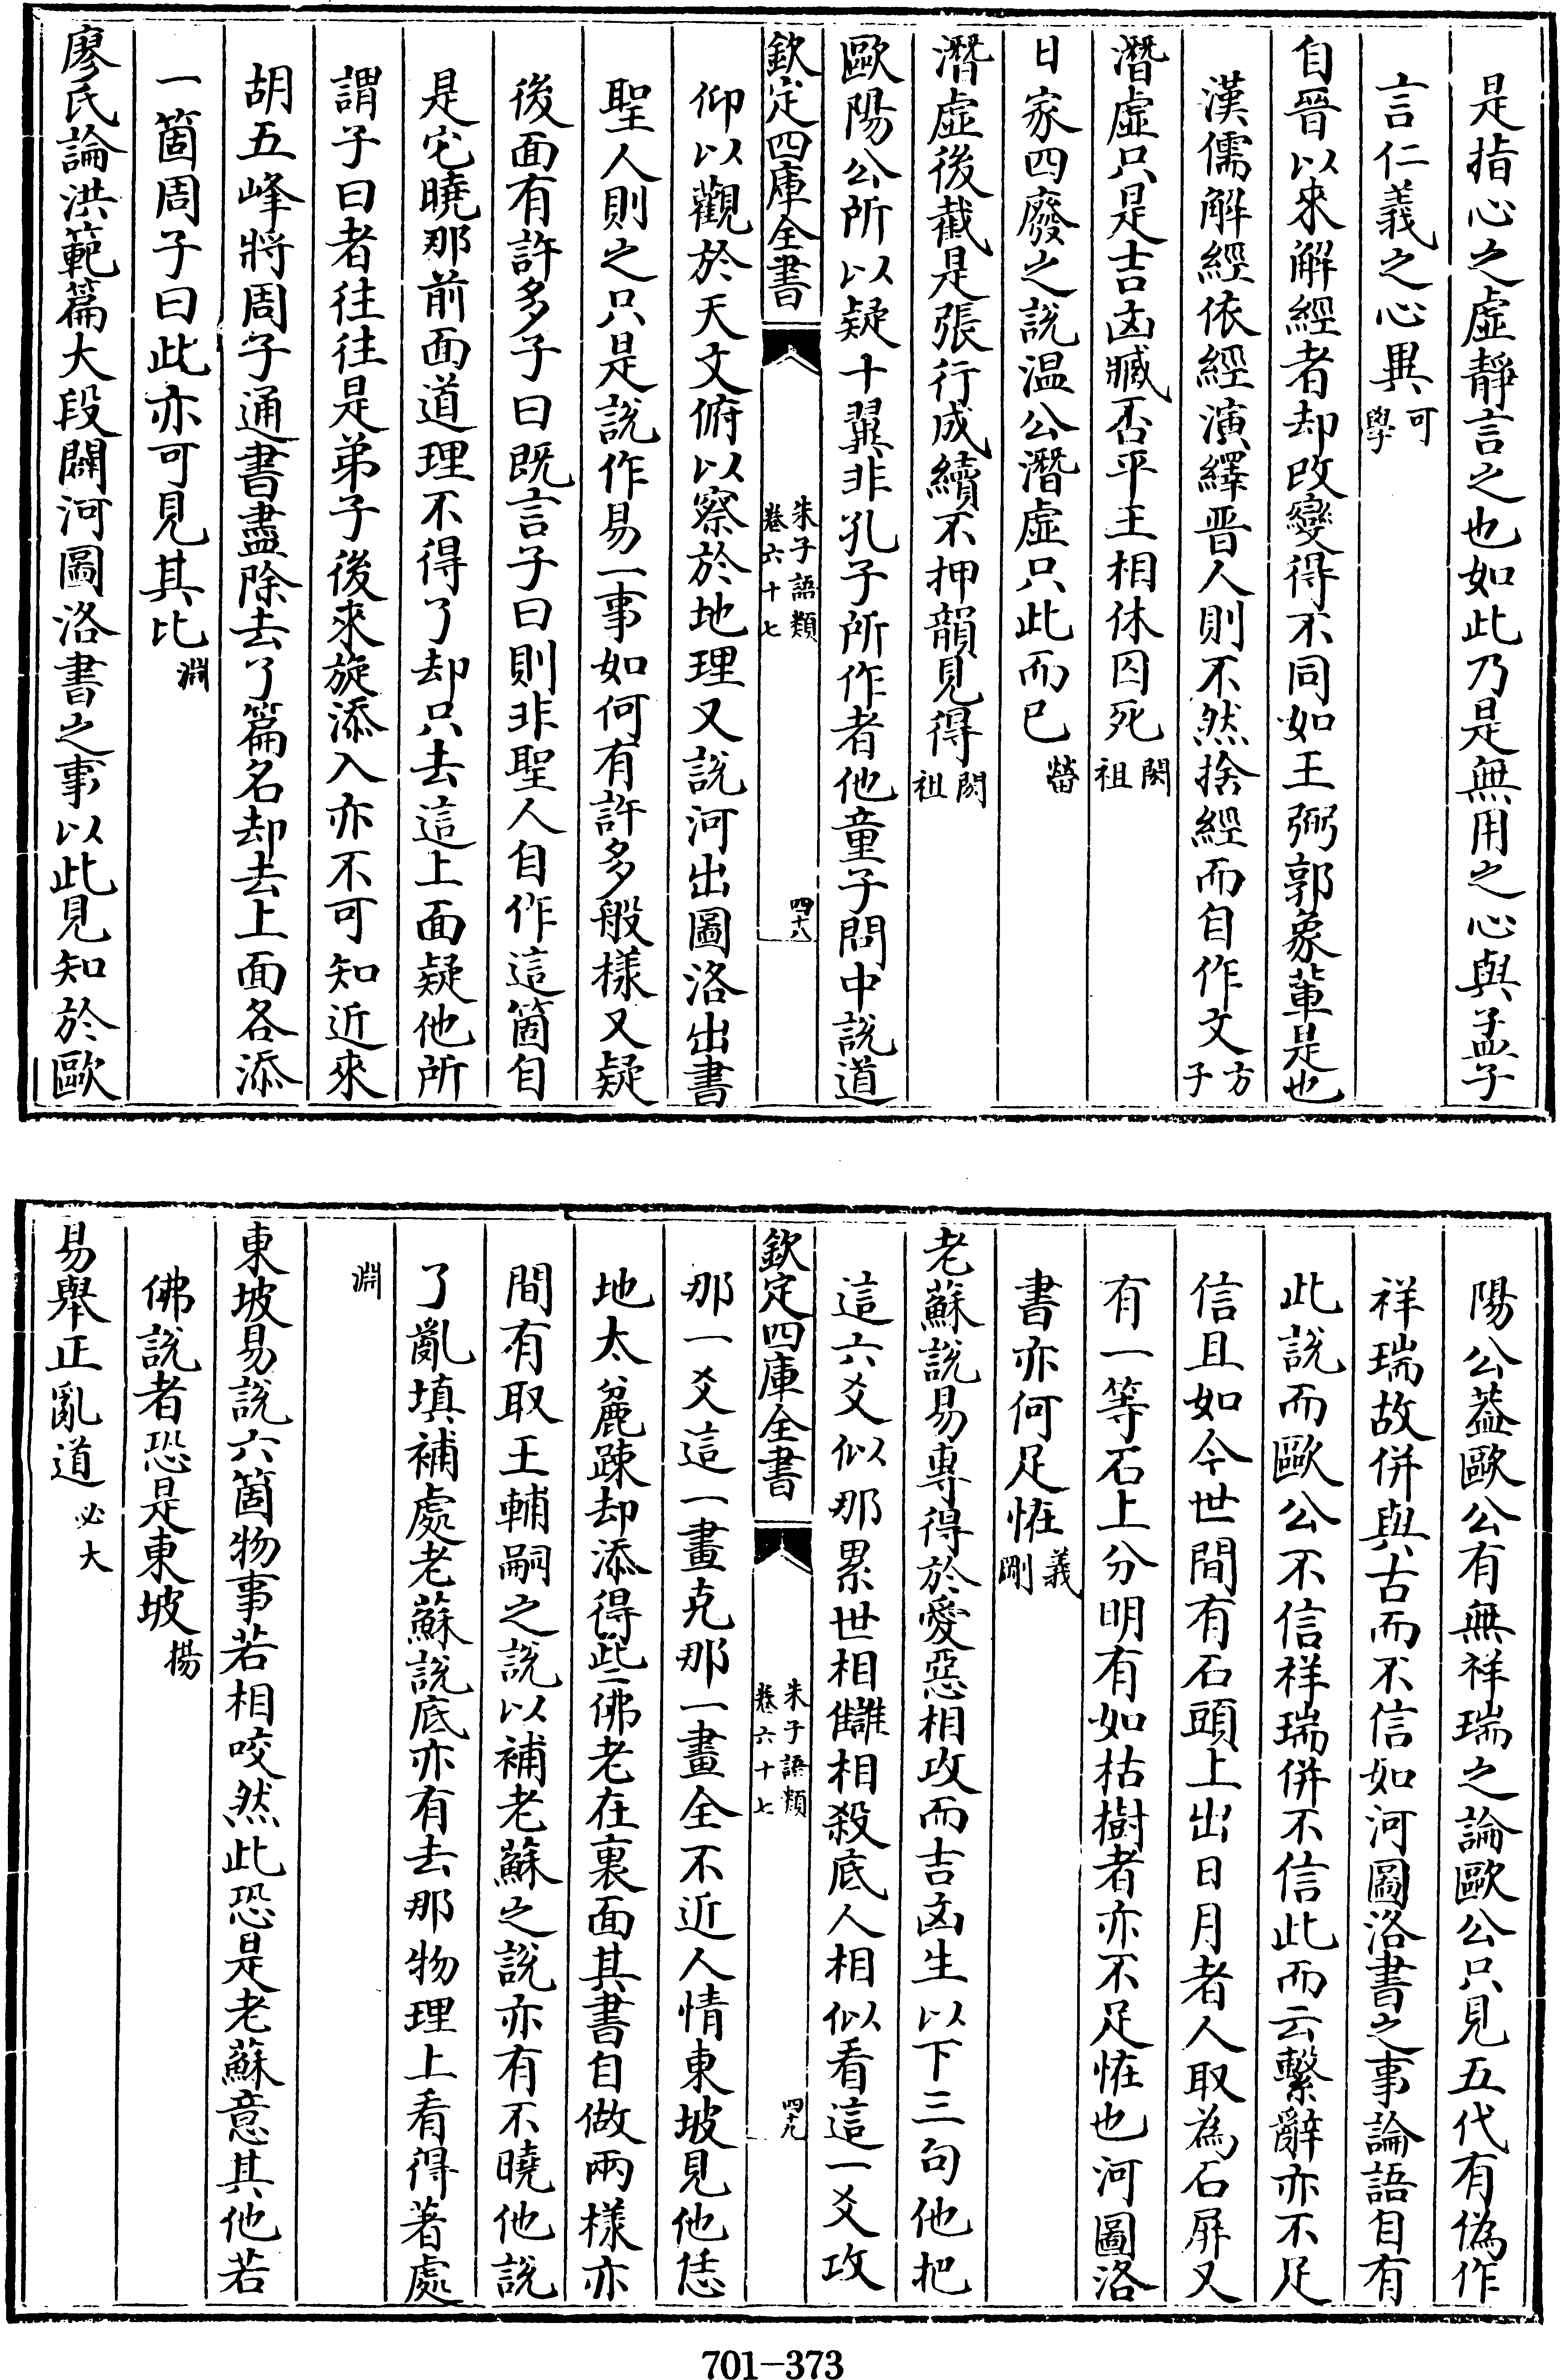 是指心之虛靜言之也如此乃是無用之心與孟子
言仁義之心異可學
自晉以來解經者却改變得不同如王弼郭象軰是也
漢儒解經依經演繹晉人則不然捨經而自作文方子
潛虛只是吉凶臧否平王相休囚死閎祖
日家四廢之說温公潛虛只此而已㽦
潛虛後截是張行成續不押韻見得閎祖
歐陽公所以疑十翼非孔子所作者他童子問中說道
欽定四庫全書
朱子語類
卷六十七
四十八
仰以觀於天文俯以察於地理又說河出圖洛出書
聖人則之只是說作易一事如何有許多般樣又疑
後面有許多子曰既言子曰則非聖人自作這箇自
是它曉那前面道理不得了却只去這上面疑他所
謂子曰者往往是弟子後來旋添入亦不可知近來
胡五峰將周子通書盡除去了篇名却去上面各添
一箇周子曰此亦可見其比淵
廖氏論洪範篇大段闢河圖洛書之事以此見知於歐
陽公葢歐公有無祥瑞之論歐公只見五代有偽作
祥瑞故併與古而不信如河圖洛書之事論語自有
此說而歐公不信祥瑞併不信此而云繫辭亦不足
信且如今世間有石頭上出日月者人取為石屏又
有一等石上分明有如枯樹者亦不足怪也河圖洛
書亦何足怪義剛
老蘇說易專得於愛惡相攻而吉凶生以下三句他把
這六爻似那累世相讎相殺底人相似看這一爻攻
欽定四庫全書
朱子語類
卷六十七
四十九
那一爻這一畫克那一畫全不近人情東坡見他恁
地太麄疎却添得些佛老在裏面其書自做兩樣亦
間有取王輔嗣之說以補老蘇之說亦有不曉他說
了亂填補處老蘇說底亦有去那物理上看得著處
淵
東坡易說六箇物事若相咬然此恐是老蘇意其他若
佛說者恐是東坡揚
易舉正亂道必大
701-373